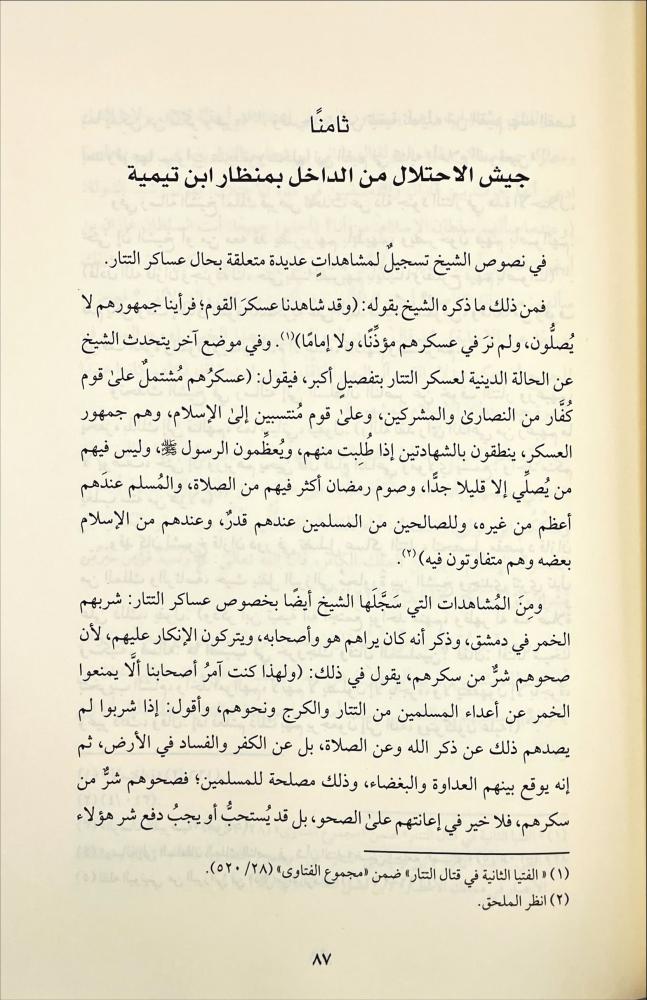 ثامنًا
جيش الاحتلال من الداخل بمنظار ابن تيمية
في نصوص الشيخ تسجيلٌ لمشاهداتٍ عديدة متعلقة بحال عساكر التتار.
فمن ذلك ما ذكره الشيخ بقوله: (وقد شاهدنا عسكرَ القوم؛ فرأينا جمهورهم لا
يُصلُّون، ولم نرَ في عسكرهم مؤذِّنًا، ولا إمامًا)(١). وفي موضع آخر يتحدث الشيخ
عن الحالة الدينية لعسكر التتار بتفصيلٍ أكبر، فيقول: (عسكرُهم مُشتملٌ علىٰ قوم
كُفَّار من النصارىٰ والمشركين، وعلىٰ قوم مُنتسبين إلىٰ الإسلام، وهم جمهور
العسكر، ينطقون بالشهادتين إذا طُلِبت منهم، ويُعظِّمون الرسول ﷺ، وليس فيهم
من يُصلِّي إلا قليلا جدًّا، وصوم رمضان أكثر فيهم من الصلاة، والمُسلم عندَهم
أعظم من غيره، وللصالحين من المسلمين عندهم قدرٌ، وعندهم من الإسلام
بعضه وهم متفاوتون فيه)(٢).
ومِنَ المُشاهدات التي سَجَّلَها الشيخ أيضًا بخصوص عساكر التتار: شربهم
الخمر في دمشق، وذكر أنه كان يراهم هو وأصحابه، ويتركون الإنكار عليهم، لأن
صحوهم شرٌّ من سكرهم، يقول في ذلك: (ولهذا كنت آمرُ أصحابنا ألَّا يمنعوا
الخمر عن أعداء المسلمين من التتار والكرج ونحوهم، وأقول: إذا شربوا لم
يصدهم ذلك عن ذكر الله وعن الصلاة، بل عن الكفر والفساد في الأرض، ثم
إنه يوقع بينهم العداوة والبغضاء، وذلك مصلحة للمسلمين؛ فصحوهم شرٌّ من
سكرهم، فلا خير في إعانتهم علىٰ الصحو، بل قد يُستحبُّ أو يجبُ دفع شر هؤلاء
(١) «الفتيا الثانية في قتال التتار» ضمن «مجموع الفتاوى» (٢٨/ ٥٢٠).
(٢) انظر الملحق.
٨٧